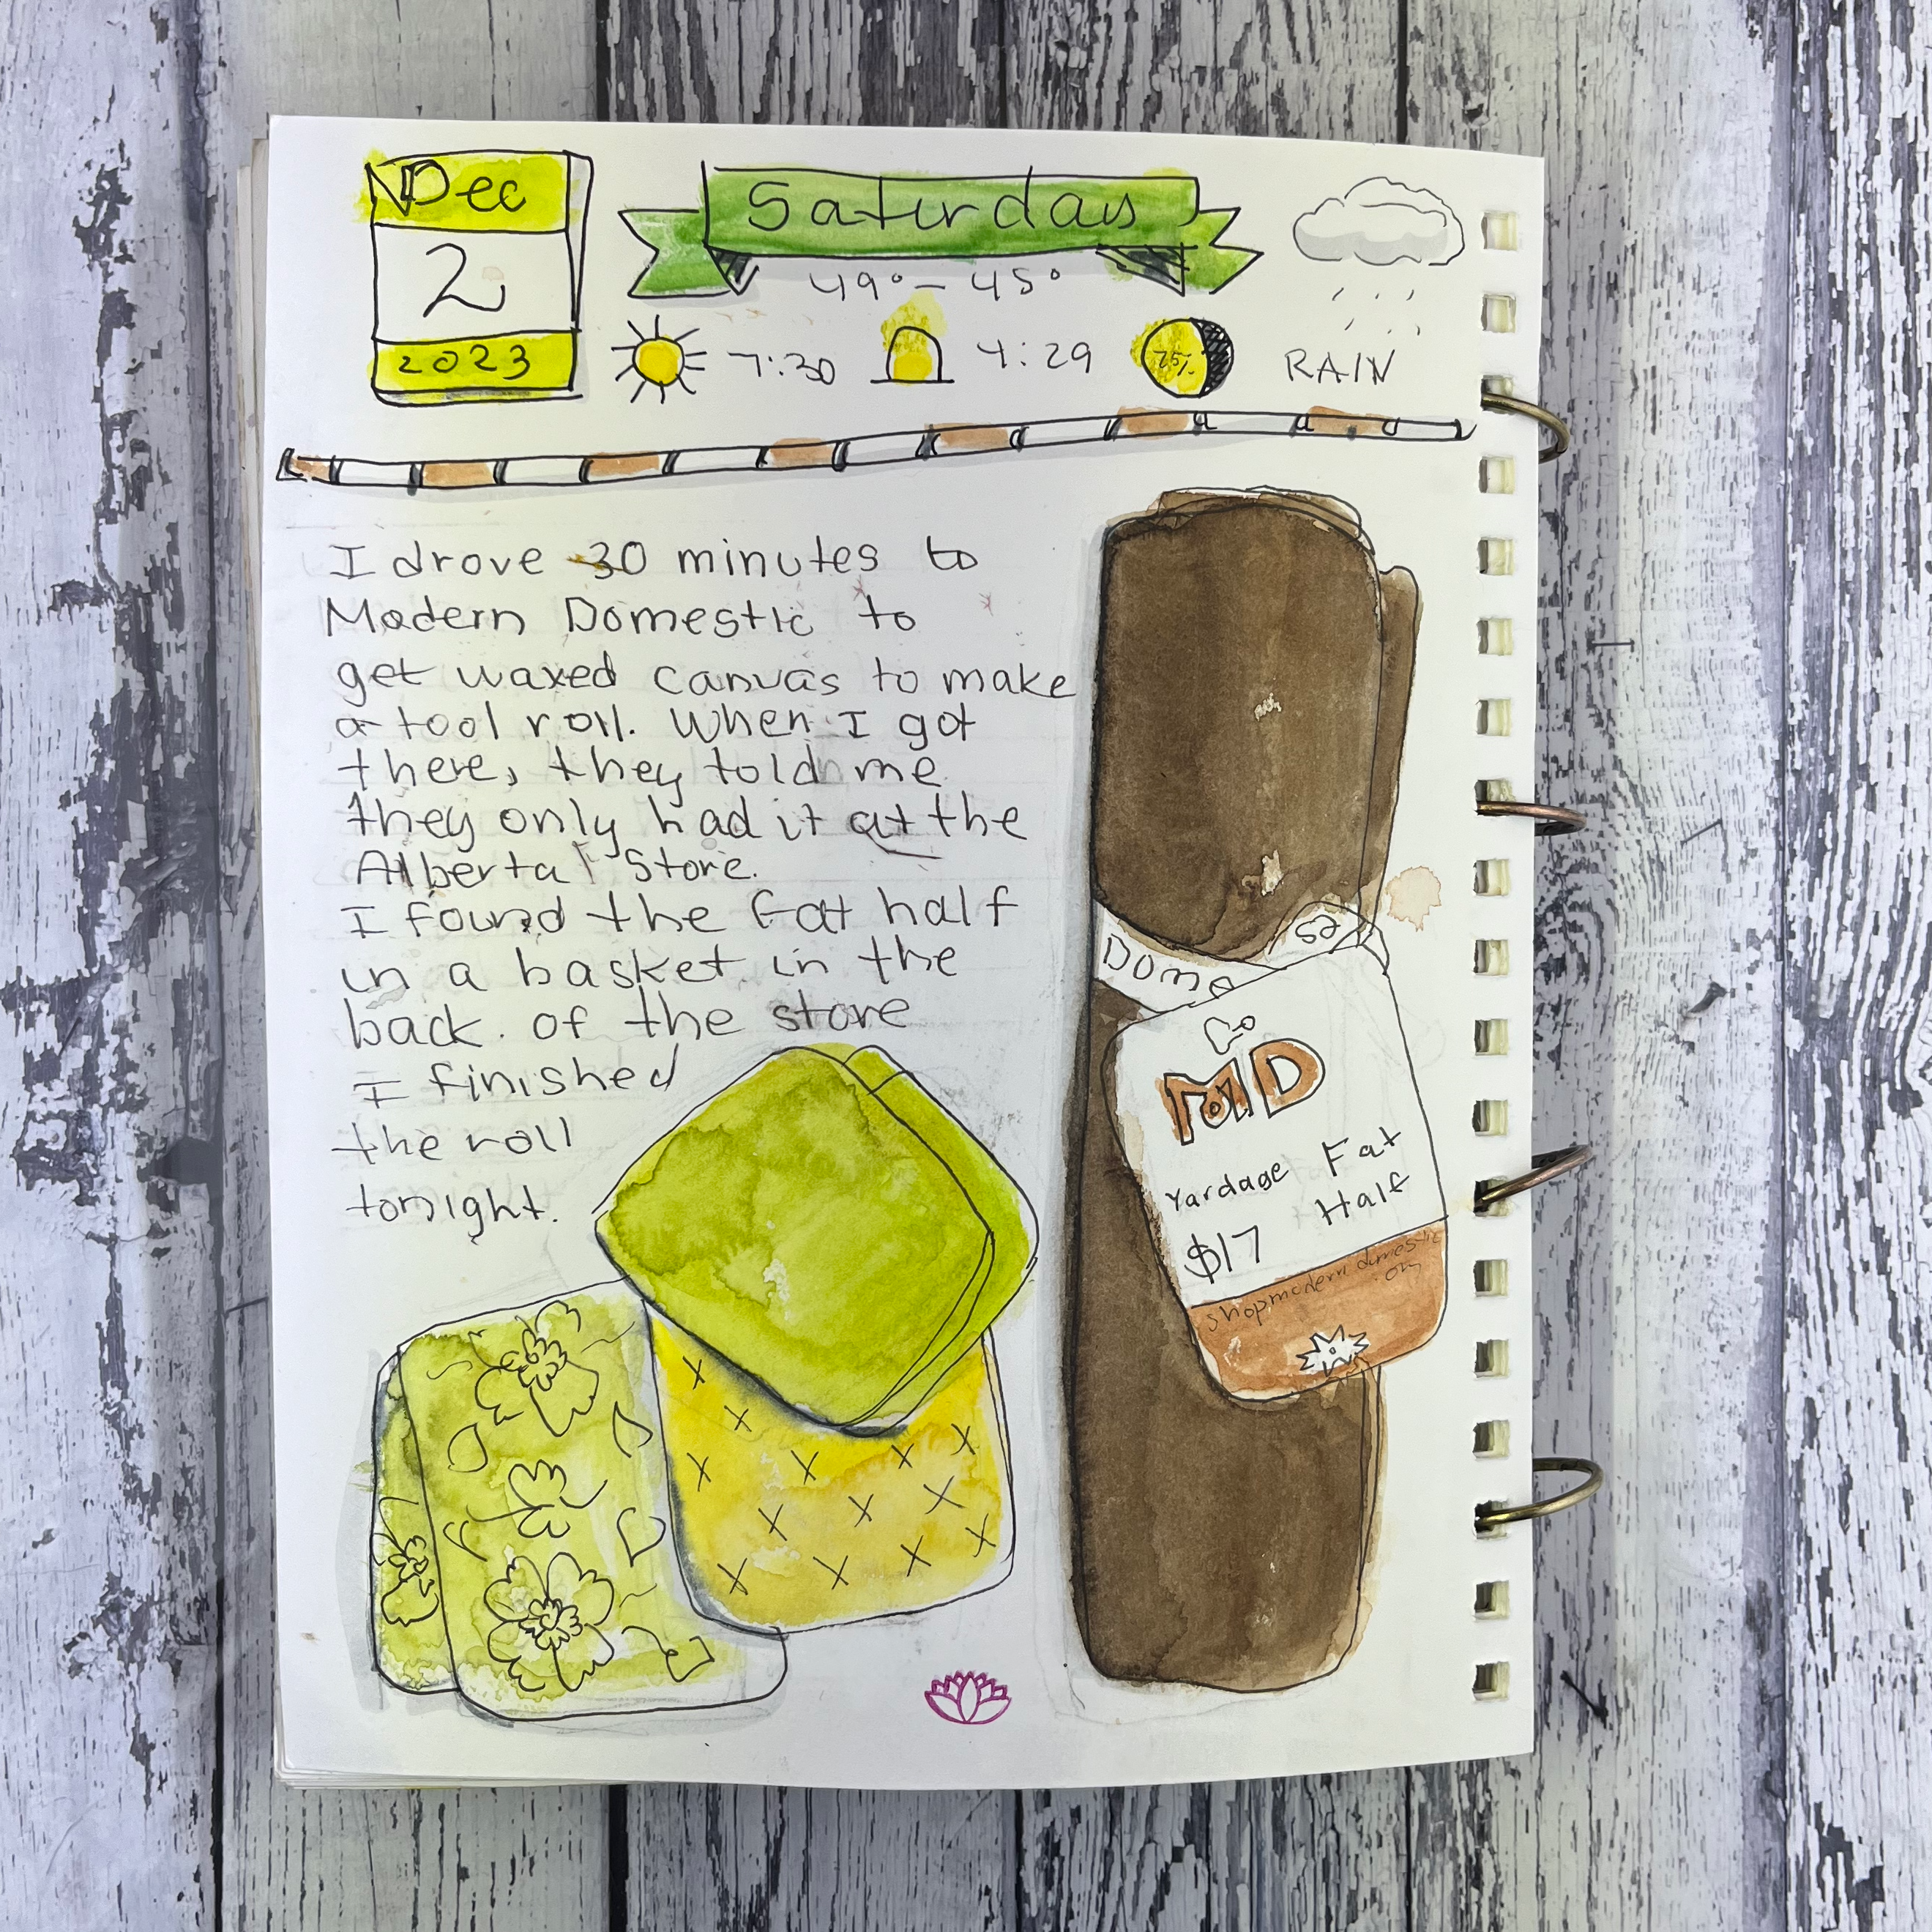 Dec
2
2023
Saturday
49° – 45°
7:30
4:29
75%
RAIN
I drove 30 minutes to
Modern Domestic to
get waxed canvas to make
a tool roll. When I got
there, they told me
they only had it at the
Alberta Store.
I found the fat half
in a basket in the
back. of the store
I finished
the roll
tonight.
Dome
MD
Yardage Fat
Half
$17
shopmodern domestic